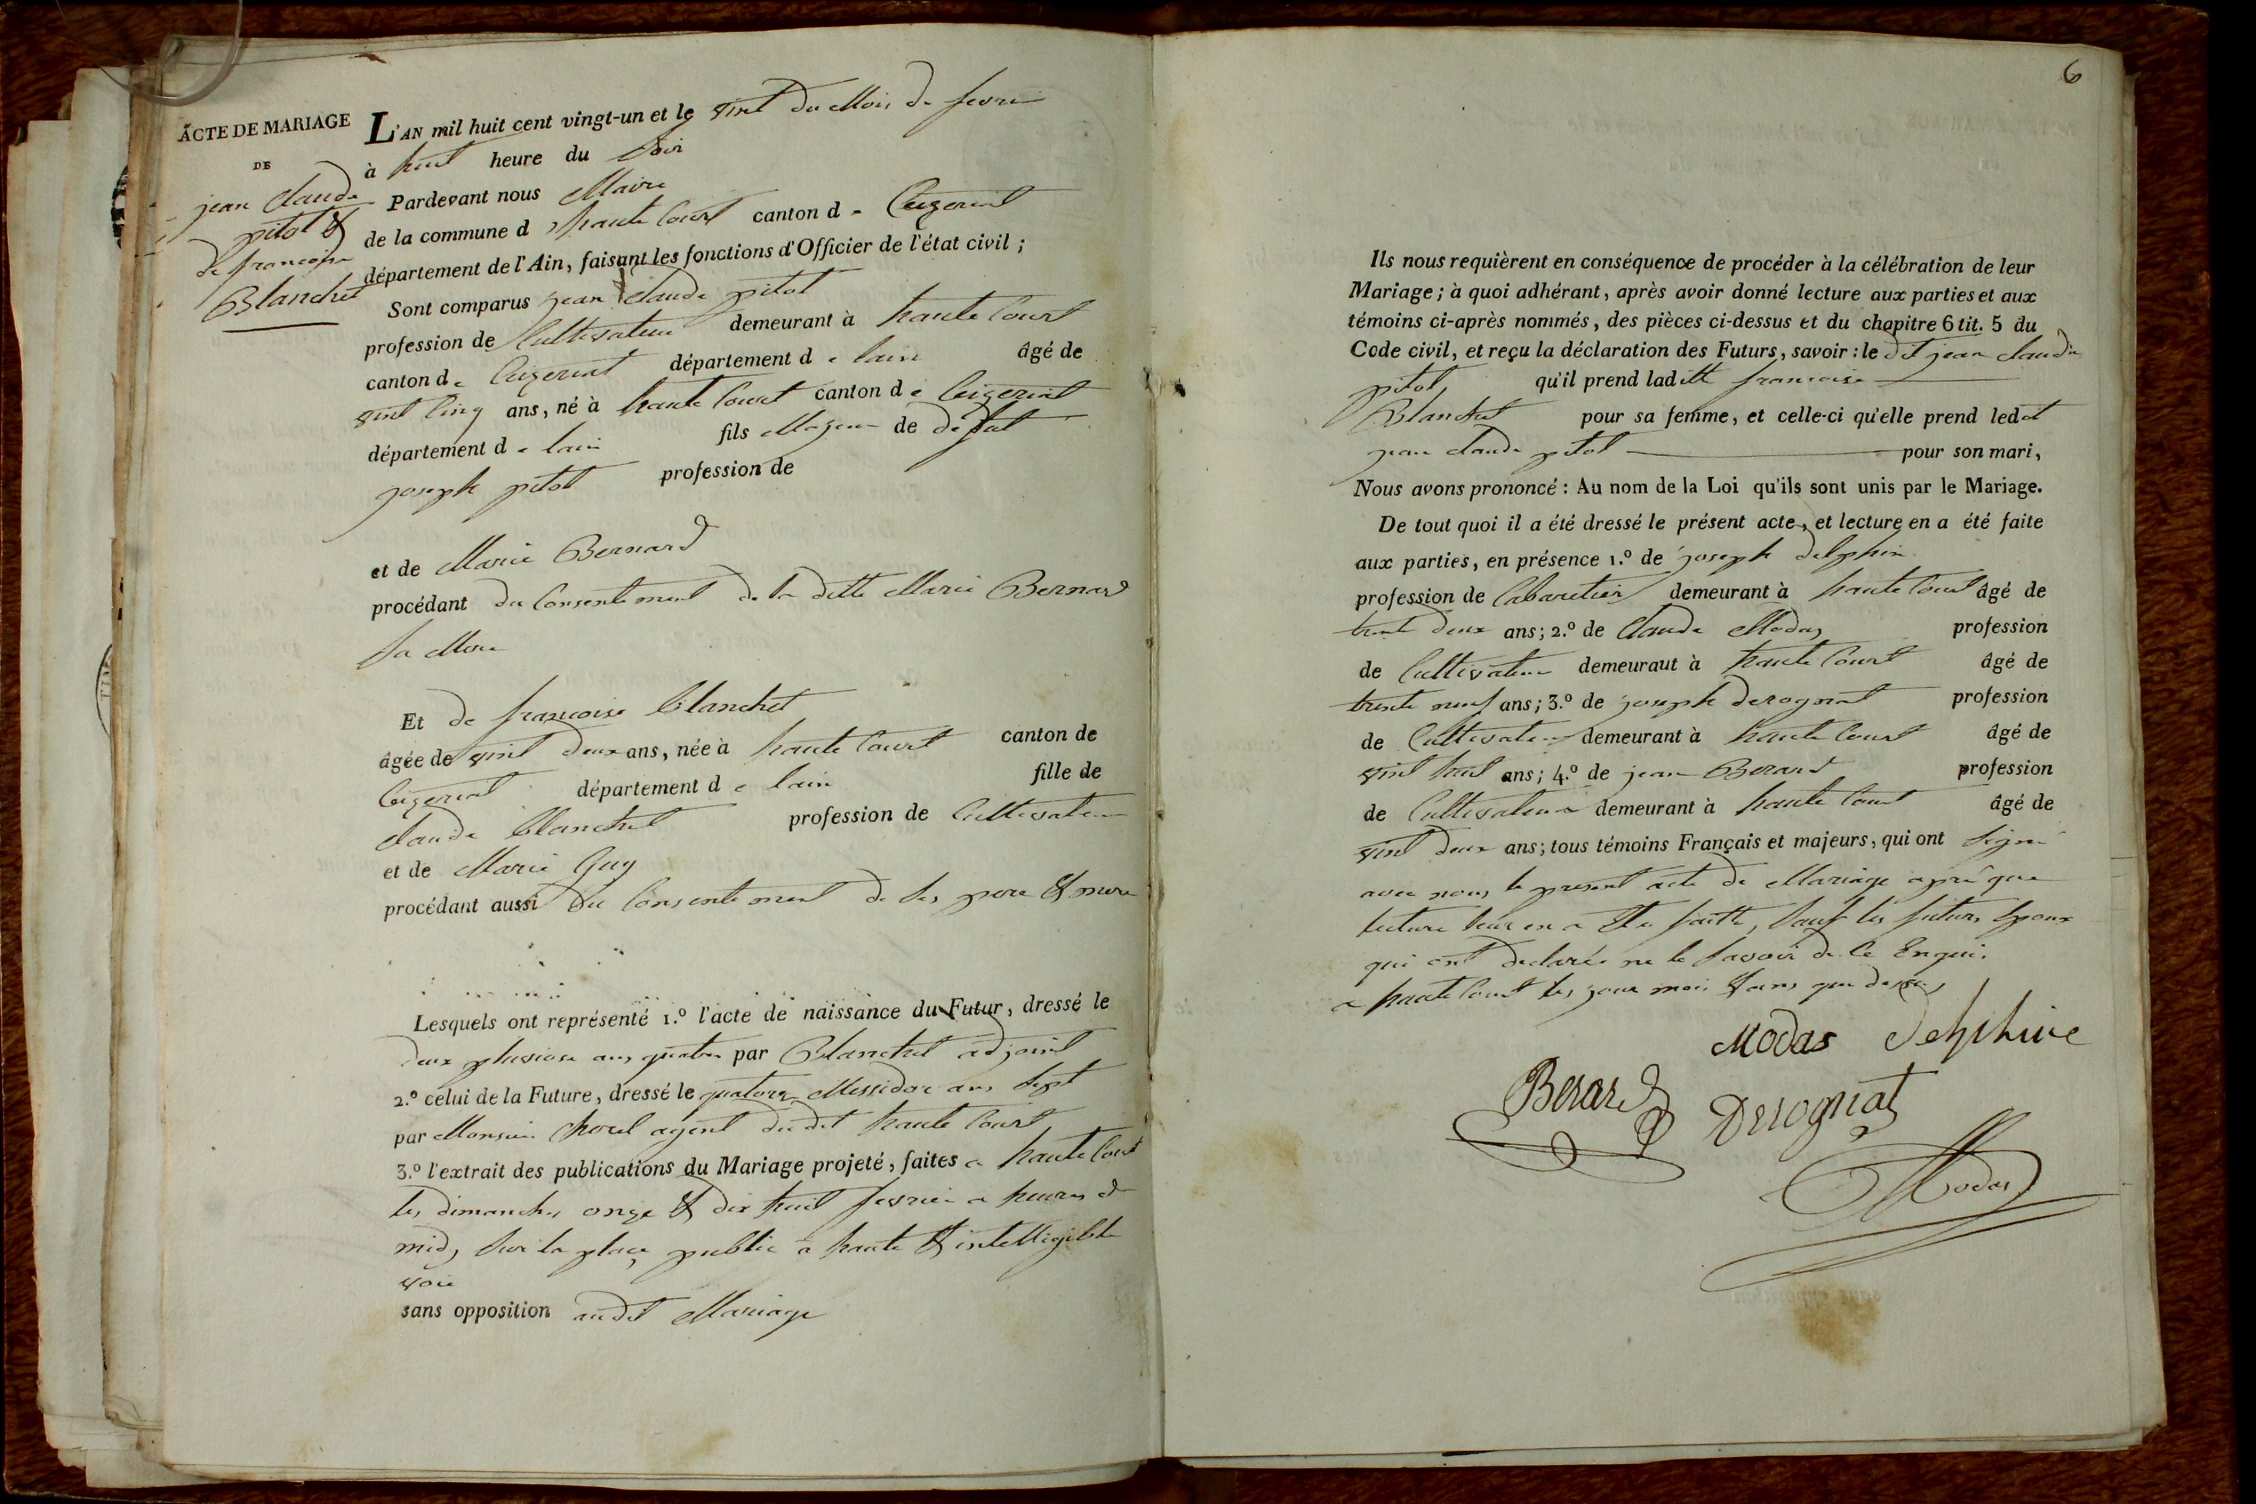 ACTE DE MARIAGE
DE
jean Claude
pitot &
de francoise
Blanchet
L'AN mil huit cent vingt-un et le vint du Mois de fevrie
à huit heure du Soir
Pardevant nous Maire
de la commune d haute Court canton d e Ceizeriat
département de l'Ain, faisant les fonctions d'Officier de l'état civil ;
Sont comparus jean Claude pitot
profession de Cultivateur demeurant à haute Court
canton d e Ceizeriat département d e lain âgé de
vint Cinq ans, né à haute Court canton d e Ceizeriat
département d e lain fils Majeur de defut
joseph pitot profession de
et de Marie Bernard
procédant du Consentement de la ditte Marie Bernard
Sa Mere
Et de francoise blanchet
âgée de vint deux ans, née à haute Court canton de
Ceizeriat département d e lain fille de
claude blanchet profession de Cultivateur
et de Marie Guy
procédant aussi du Consentement de Ses pere & mere
Lesquels ont représenté 1.º l'acte de naissance du Futur, dressé le
deux pluviose ans quatre par Blanchet adjoint
2.º celui de la Future, dressé le quatorze Messidor ans Sept
par Monsieur chorel agent du dit haute Court
3.º l'extrait des publications du Mariage projeté, faites a haute Court
les dimanches onze & dix huit fevrier a heures de
midy Sur la place public a haute & intelligible
voie
sans opposition audit Mariage
6
Ils nous requièrent en conséquence de procéder à la célébration de leur
Mariage ; à quoi adhérant, après avoir donné lecture aux parties et aux
témoins ci-après nommés, des pièces ci-dessus et du chapitre 6 tit. 5 du
Code civil, et reçu la déclaration des Futurs, savoir : le dit jean claude
pitot qu'il prend laditte francoise
Blanchet pour sa femme, et celle-ci qu'elle prend ledit
jean claude pitot pour son mari,
Nous avons prononcé : Au nom de la Loi qu'ils sont unis par le Mariage.
De tout quoi il a été dressé le présent acte, et lecture en a été faite
aux parties, en présence 1.º de joseph delphin
profession de Cabaretier demeurant à haute Court âgé de
trente deux ans ; 2.º de Claude Modas profession
de Cultivateur demeuraut à haute Court âgé de
trente neuf ans ; 3.º de joseph derognat profession
de Cultivateur demeurant à haute Court âgé de
vint huit ans ; 4.º de jean Berard profession
de Cultivateur demeurant à haute Court âgé de
vint deux ans ; tous témoins Français et majeurs, qui ont Signé
avec nous le present acte de Mariage apré que
lecture leur en a Eté faitte, Sauf les futurs Epoux
qui ont declarés ne le Savoir de Ce Enquis
a haute Court les jour mois & ans que dessus
Modas Delphine
Berard Derognat
Modas